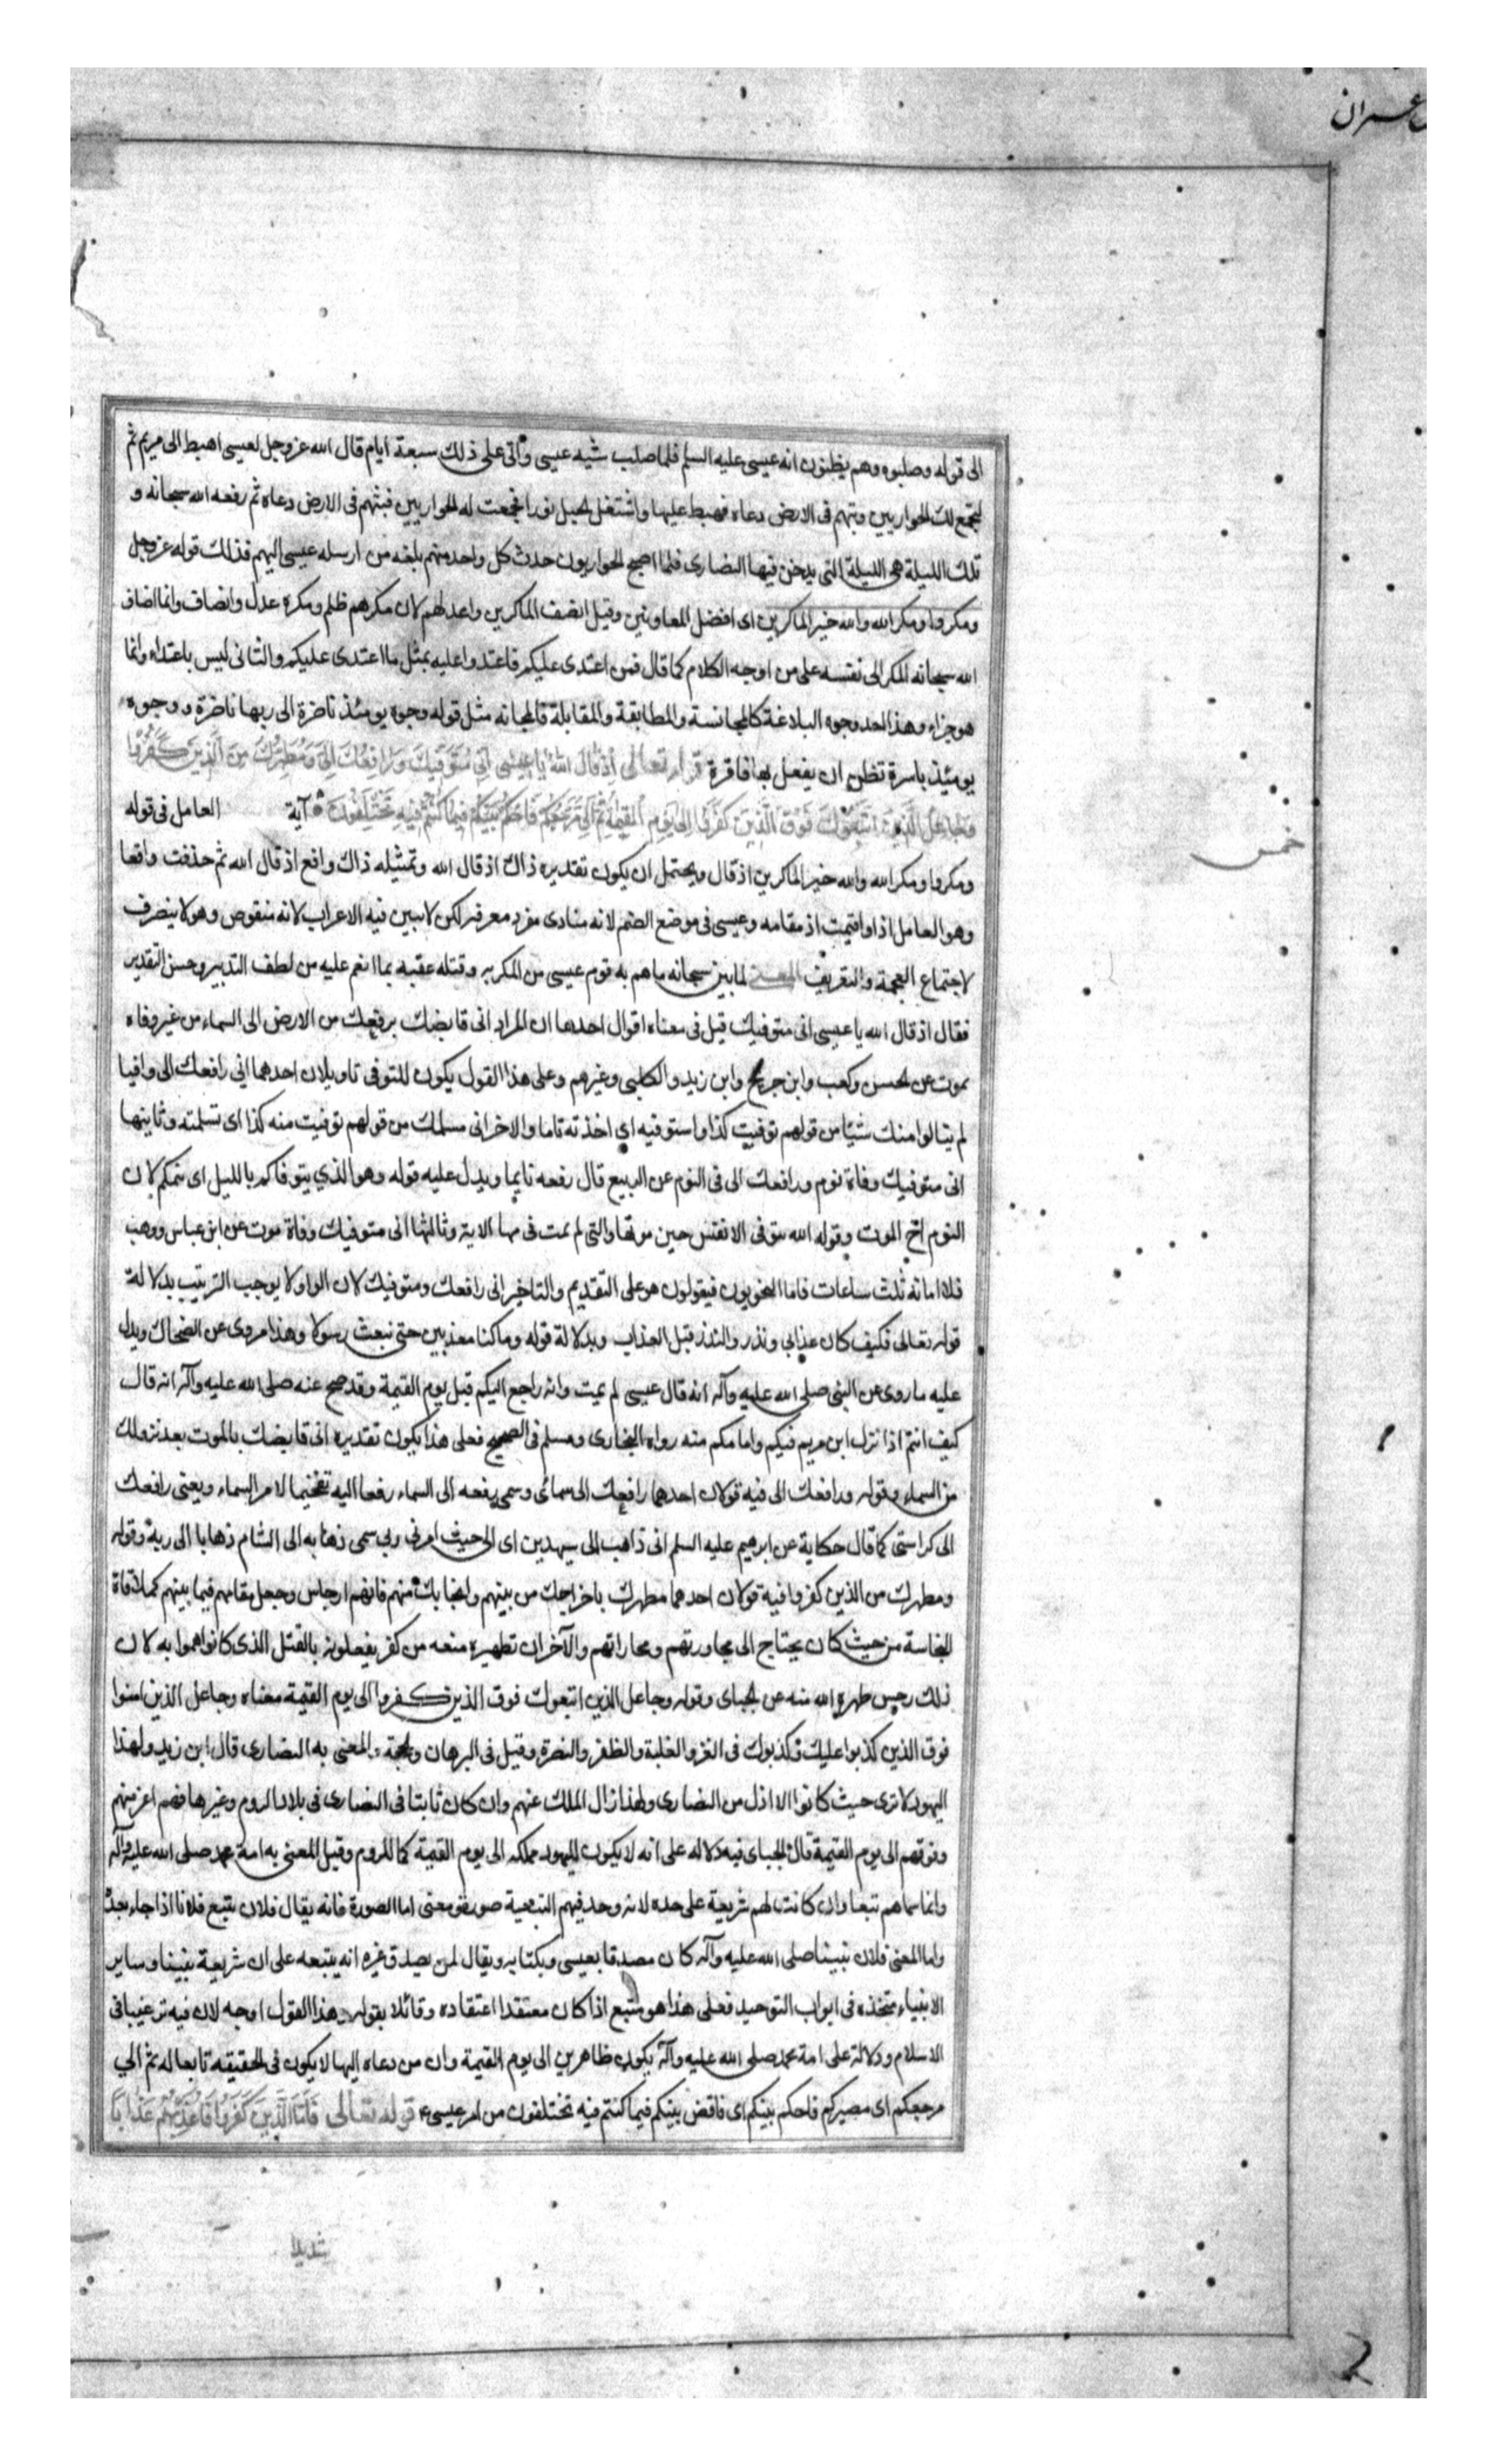 عمران
الى قوله وصلبوه وهم يظنون انه عيسى عليه السلم فلما صلب شبه عيسى واتى على ذلك سبعة ايام قال الله عز وجل لعيسى اهبط الى مريم ثم
لتجمع لك الحواريين وبثهم فى الارض دعاه فهبط عليها واشتغل الجبل نورا فجمعت له الحواريين فبثهم فى الارض دعاه ثم رفعه الله سبحانه و
تلك الليلة هى الليلة التى يدخن فيها النصارى فلما اصبح الحواريون حدث كل واحد منهم بلغه من ارسله عيسى اليهم فذلك قوله عز وجل
ومكروا ومكر الله والله خير الماكرين اى افضل المعاونين وقيل انصف الماكرين واعدلهم لان مكرهم ظلم ومكره عدل وانصاف وانما اضاف
الله سبحانه المكر الى نفسه على من اوجه الكلام كما قال فمن اعتدى عليكم فاعتدوا عليه بمثل ما اعتدى عليكم والثانى ليس باعتداء وانما
هو جزاء وهذا احد وجوه البلاغة كالمجانسة والمطابقة والمقابلة فالمجانه مثل قوله وجوه يومئذ ناضرة الى ربها ناظرة ووجوه
يومئذ باسرة تظن ان يفعل بها فاقرة قوله تعالى اِذْ قَالَ اللهُ يَا عِيسَى اِنِّى مُتَوَفِّيكَ وَرَافِعُكَ اِلَىَّ وَمُطَهِّرُكَ مِنَ الَّذِينَ كَفَرُوا
وَجَاعِلُ الَّذِينَ اتَّبَعُوكَ فَوْقَ الَّذِينَ كَفَرُوا اِلَى يَوْمِ الْقِيمَةِ ثُمَّ اِلَىَّ مَرْجِعُكُمْ فَاَحْكُمُ بَيْنَكُمْ فِيمَا كُنْتُمْ فِيهِ تَخْتَلِفُونَ آية العامل فى قوله
خمس
ومكروا ومكر الله والله خير الماكرين اذ قال ويحتمل ان يكون تقديره ذاك اذ قال الله وتمثيله ذاك واقع اذ قال الله ثم حذفت واقعا
وهو العامل اذا واقيمت اذ مقامه وعيسى فى موضع الضم لانه منادى مفرد معرفه لكن لا يبين فيه الاعراب لانه منقوص وهو لا ينصرف
لاجتماع العجمة والتعريف المعنى لما بين سبحانه ما هم به قوم عيسى من المكر به وقتله عقبه بما انعم عليه من لطف التدبير وحسن التقدير
فقال اذ قال الله يا عيسى انى متوفيك قيل فى معناه اقوال احدها ان المراد انى قابضك برفعك من الارض الى السماء من غير وفاه
بموت عن الحسن وكعب وابن جريح وابن زيد والكلبى وغيرهم وعلى هذا القول يكون للتوفى تاويلان احدهما انى رافعك الى وافيا
لم ينالوا منك شيئا من قولهم توفيت كذا واستوفيه اى اخذته تاما والاخر انى مسلمك من قولهم توفيت منه كذا اى تسلمته وثانيها
انى متوفيك وفاة نوم ورافعك الى فى النوم عن الربيع قال رفعه نايما ويدل عليه قوله وهو الذي يتوفاكم بالليل اى ينمكم لان
النوم اخ الموت وقوله الله يتوفى الانفس حين موتها والتى لم تمت فى منامها الاية وثالثها انى متوفيك وفاة موت عن ابن عباس ووهب
قلا اماته ثلث ساعات فاما النحويون فيقولون هو على التقديم والتاخير انى رافعك ومتوفيك لان الواو لا يوجب الترتيب بدلالة
قوله تعالى فكيف كان عذابى ونذر والنذر قبل العذاب وبدلالة قوله وما كنا معذبين حتى نبعث رسولا وهذا مروى عن الضحاك ويدل
عليه ما روى عن النبى صلى الله عليه وآله انه قال عيسى لم يمت وانه راجع اليكم قبل يوم القيمة وقد صح عنه صلى الله عليه وآله انه قال
كيف انتم اذا نزل ابن مريم فيكم وامامكم منه رواه البخارى ومسلم فى الصحيح فعلى هذا يكون تقديره انى قابضك بالموت بعد نزولك
من السماء وقوله ورافعك الى فيه قولان احدهما رافعك الى سمائى وسمى رفعه الى السماء رفعا اليه تفخيما لامر السماء ويعنى رافعك
الى كرامتى كما قال حكاية عن ابرهيم عليه السلم انى ذاهب الى سيهدين اى الى حيث امرنى ربى سمى ذهابه الى الشام ذهابا الى ربه وقوله
ومطهرك من الذين كفروا فيه قولان احدهما مطهرك باخراجك من بينهم وانجابك منهم فانهم ارجاس وجعل مقامهم فيما بينهم كملاقاة
النجاسة من حيث كان يحتاج الى مجاورتهم ومجاراتهم والآخر ان تطهيره منعه من كفر يفعلونه بالقتل الذى كانوا هموا به لان
ذلك رجس طهره الله منه عن الجباى وقوله وجاعل الذين اتبعوك فوق الذين كفروا الى يوم القيمة معناه وجاعل الذين امنوا
فوق الذين كذبوا عليك وكذبوك فى العز والغلبة والظفر والنصرة وقيل فى البرهان والحجة والمعنى به النصارى قال ابن زيد ولهذا
اليهود لا ترى حيث كانوا الا اذل من النصارى ولهذا زال الملك عنهم وان كان ثابتا فى النصارى فى بلاد الروم وغيرها فهم اعز منهم
وفوقهم الى يوم القيمة قال الجباى فيه دلاله على انه لا يكون لليهود مملكه الى يوم القيمة كما للروم وقيل المعنى به امة محمد صلى الله عليه وآله
وانما سماهم تبعا وان كانت لهم شريعة على حده لانه وجد فيهم التبعية صورة ومعنى اما الصورة فانه يقال فلان يتبع فلانا اذا جاء بعده
واما المعنى فلان نبينا صلى الله عليه وآله كان مصدقا بعيسى وبكتابه ويقال لمن يصدق غيره انه يتبعه على ان شريعة نبينا وساير
الانبياء متخذه فى ابواب التوحيد فعلى هذا هو متبع اذا كان معتقدا اعتقاده وقائلا بقوله وهذا القول اوجه لان فيه ترغيبا فى
الاسلام ودلالة على امة محمد صلى الله عليه وآله يكون ظاهرين الى يوم القيمة وان من دعاه اليها لا يكون فى الحقيقه تابعا له ثم الي
مرجعكم اى مصيركم فاحكم بينكم اى فاقض بينكم فيما كنتم فيه تختلفون من امر عيسى ع قوله تعالى فَاَمَّا الَّذِينَ كَفَرُوا فَاُعَذِّبُهُمْ عَذَابًا
شديدا